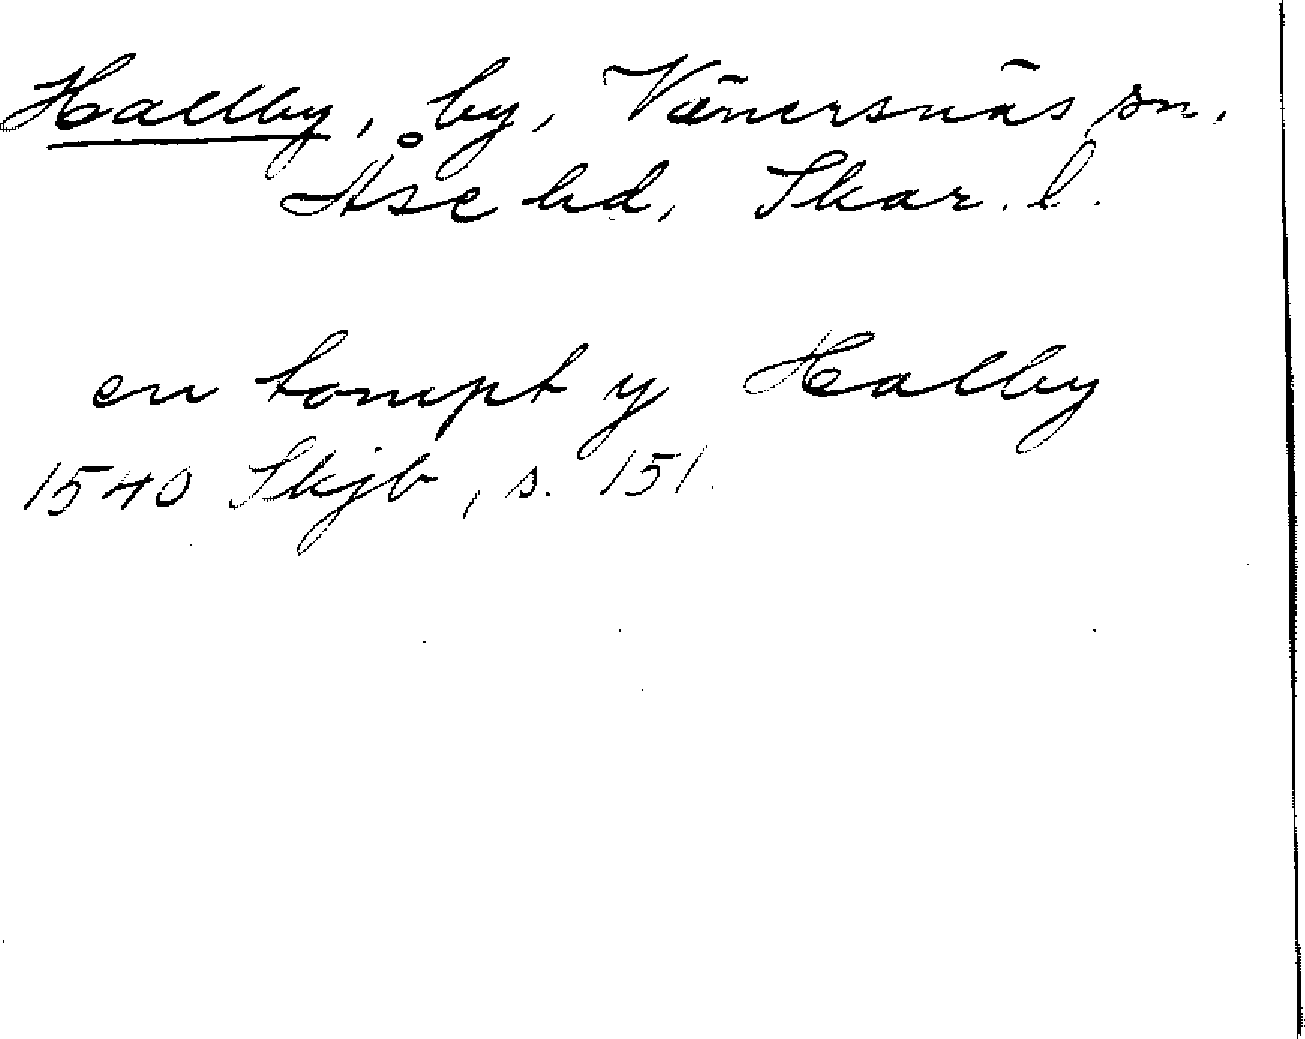 Hallby, by, Vänersnäs sn.
Åse hd, Skar. l.
en tompt y Halby
1540 Skjb, s. 151.